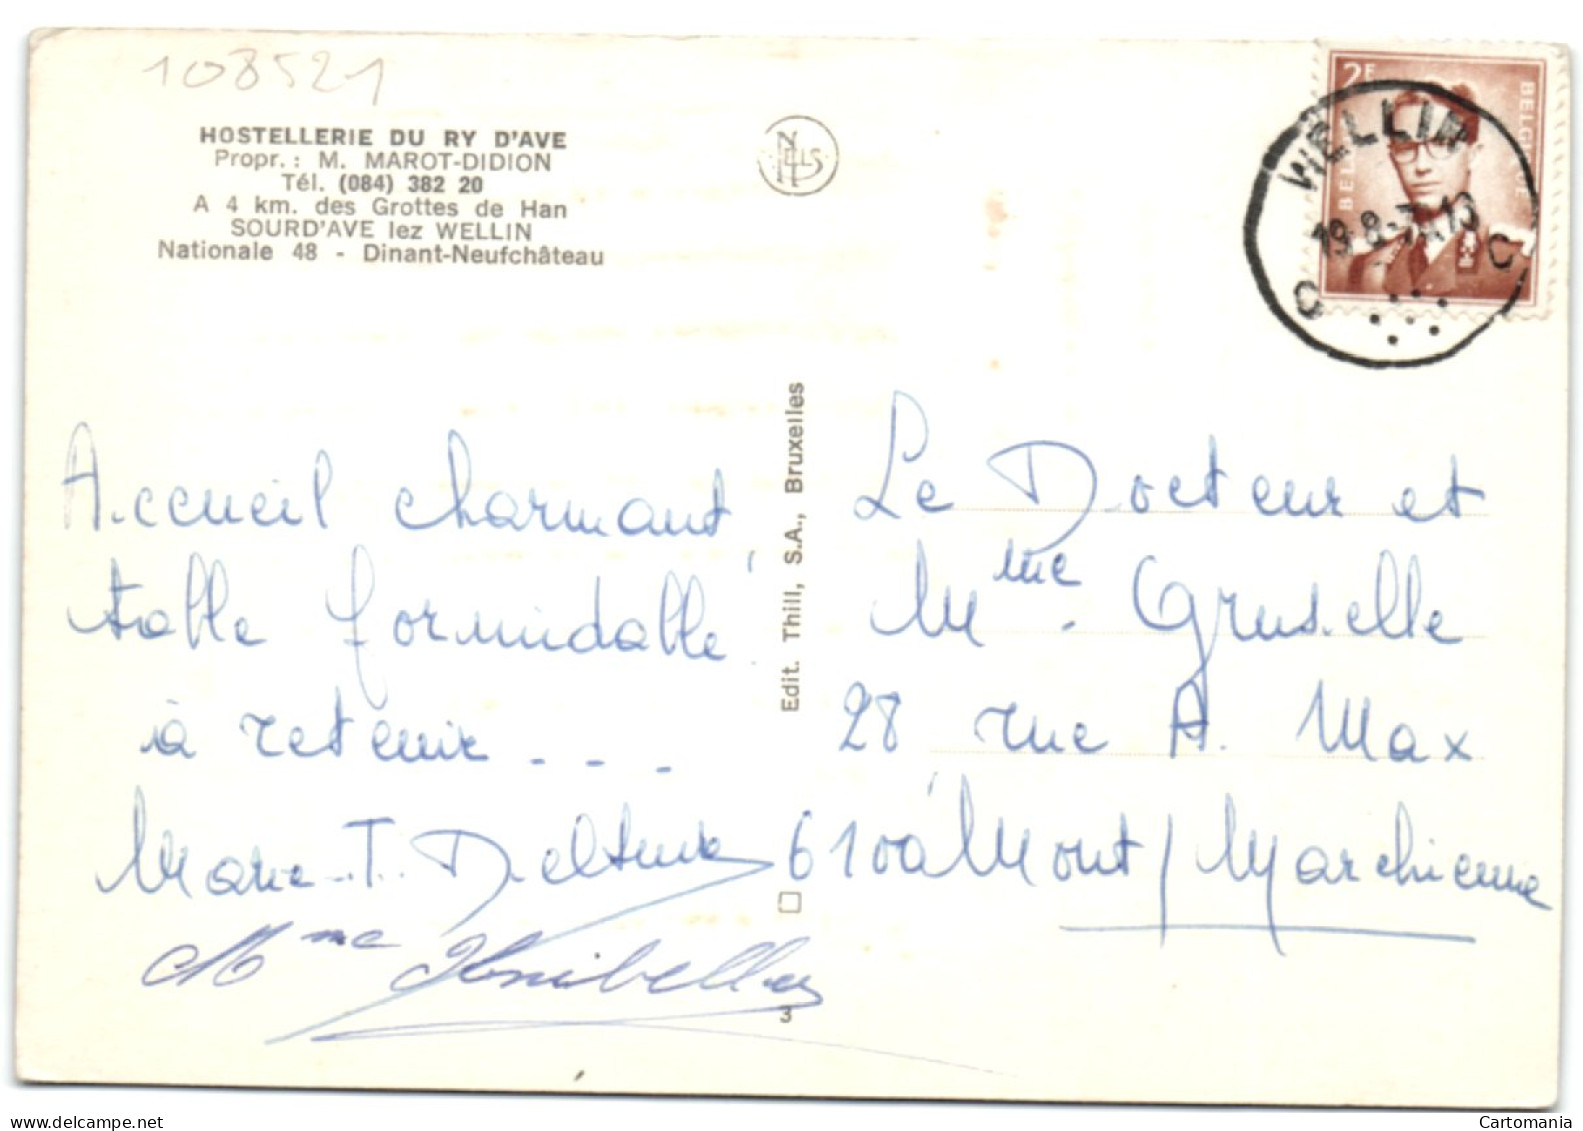 108521
HOSTELLERIE DU RY D'AVE
Propr. : M. MAROT-DIDION
Tél. (084) 382 20
A 4 km. des Grottes de Han
SOURD'AVE lez WELLIN
Nationale 48 - Dinant-Neufchâteau
NELS
2F
BELGIQUE
WELLIN
C C
Accueil charmant,
table formidable
à retenir - - -
Marie-T.
Mme
Edit. Thill, S.A., Bruxelles
3
Le Docteur et
Mme. Gruselle
28 rue A. Max
6100 Mont / Marchienne
Cartomania